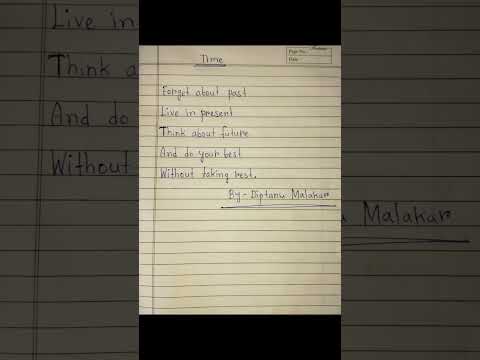 Time
Page No.
Date
Forget about past
Live in present
Think about future
And do your best
Without taking rest.
By - Diptanu Malakar
Live in
Think a
And do
Without
Malakar